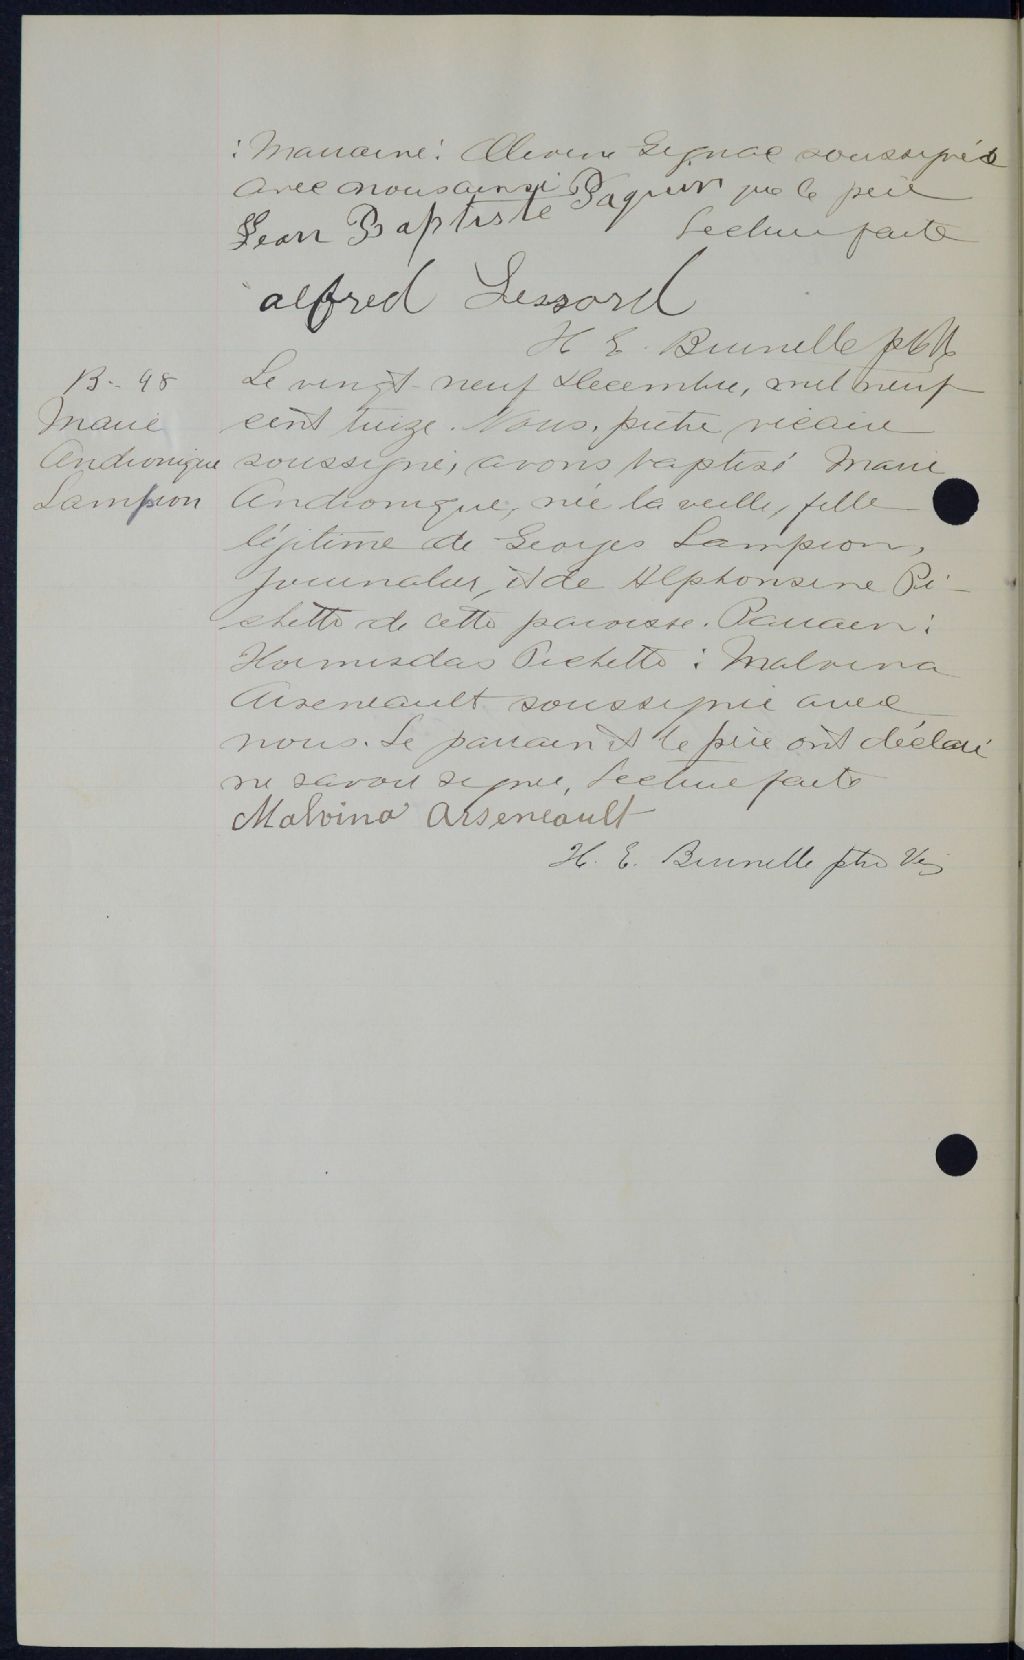 : Marraine : Olivine Gignac soussignés
avec nous ainsi que le père
Jean Baptiste Paquin Lecture faite
alfred Lessard
H E. Brunelle ptre
B- 98
Marie
Andronique
Lampron
Le vingt-neuf Decembre, mil neuf
cent treize. Nous, prêtre vicaire
soussigné, avons baptisé Marie
Andronique, née la veille, fille
légitime de Georges Lampron,
journalier, et de Alphonsine Pi-
chette de cette paroisse. Parrain :
Hormisdas Pichette : Malvina
Arseneault soussignée avec
nous. Le parrain et le père ont déclaré
ne savoir signer, Lecture faite
Malvina Arseneault
H. E. Brunelle ptre Vic